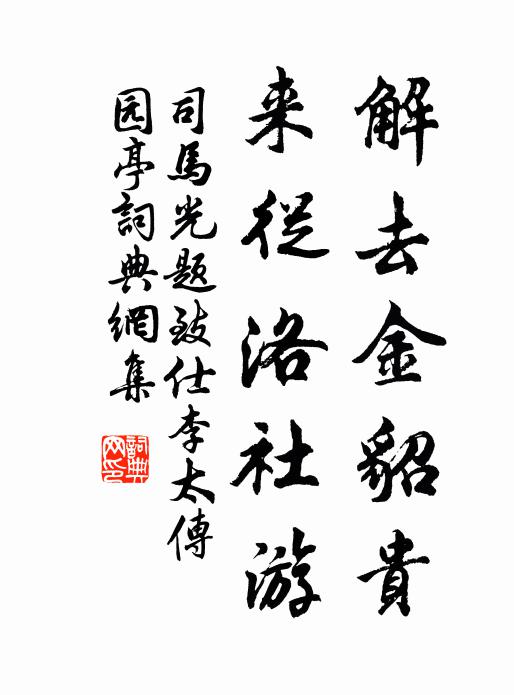 解去金貂貴
来從洛社游
司馬光题致仕李太傅
园亭詞典網集
詞典
网印